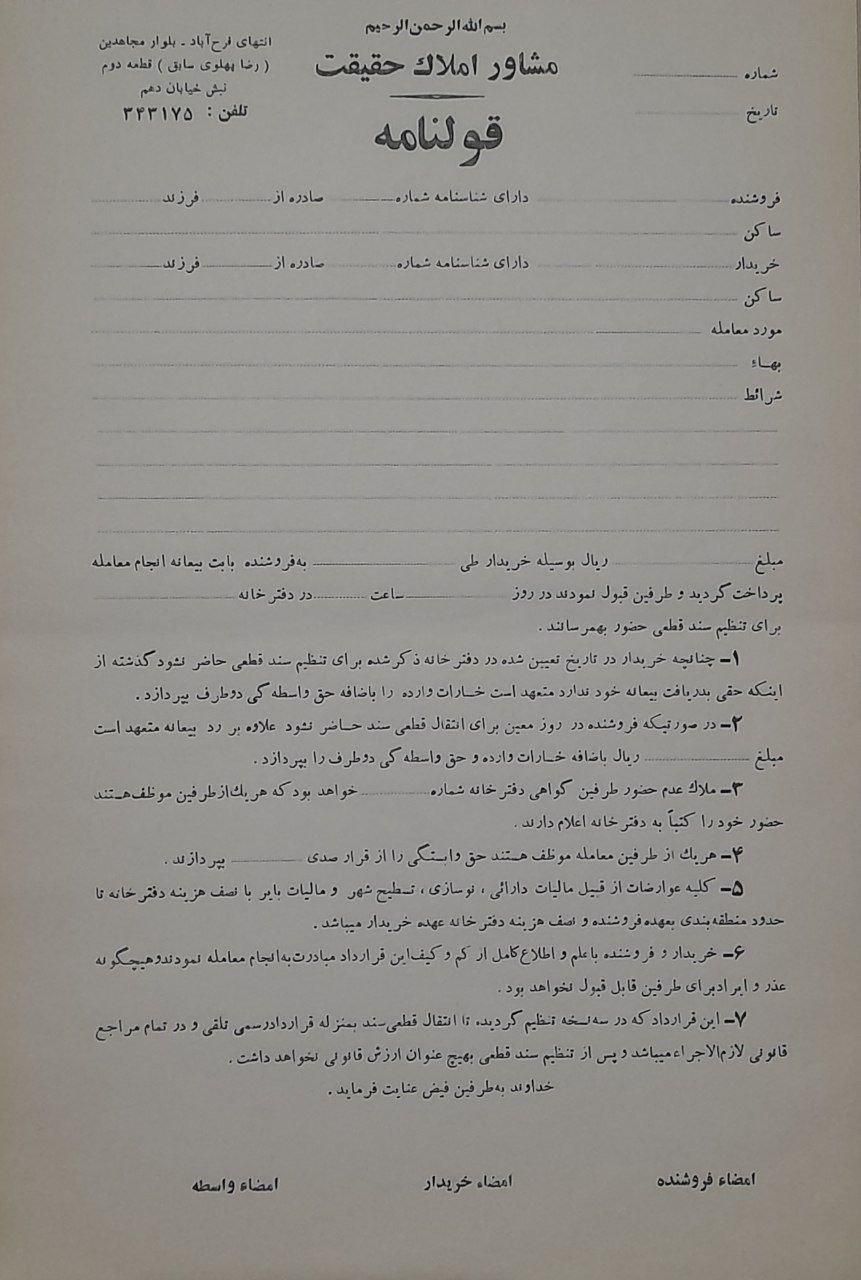 بسم الله الرحمن الرحیم
مشاور املاك حقیقت
انتهای فرح‌آباد ـ بلوار مجاهدین
( رضا پهلوی سابق ) قطعه دوم
نبش خیابان دهم
تلفن : ۳۴۳۱۷۵
شماره
تاریخ
قولنامه
فروشنده ............ دارای شناسنامه شماره ............ صادره از ............ فرزند ............
ساکن ............
خریدار ............ دارای شناسنامه شماره ............ صادره از ............ فرزند ............
ساکن ............
مورد معامله ............
بهــاء ............
شرائط ............
مبلغ ............ ریال بوسیله خریدار طی ............ به‌فروشنده بابت بیعانه انجام معامله
پرداخت گردید و طرفین قبول نمودند در روز ............ ساعت ............ در دفتر خانه ............
برای تنظیم سند قطعی حضور بهمرسانند .
۱ـ چنانچه خریدار در تاریخ تعیین شده در دفتر خانه ذکر شده برای تنظیم سند قطعی حاضر نشود گذشته از
اینکه حقی بدریافت بیعانه خود ندارد متعهد است خسارات وارده را باضافه حق واسطه گی دوطرف بپردازد .
۲ـ در صورتیکه فروشنده در روز معین برای انتقال قطعی سند حـاضر نشود علاوه بر رد بیعانه متعهد است
مبلغ ............ ریال باضافه خسارات وارده و حق واسطه گی دوطرف را بپردازد .
۳ـ ملاك عدم حضور طرفین گواهی دفتر خانه شماره ............ خواهد بود که هریك‌ازطرفین موظف‌هستند
حضور خود را کتباً به دفترخانه اعلام دارند .
۴ـ هریك از طرفین معامله موظف هستند حق وابستگی را از قرار صدی ............ بپردازند .
۵ـ کلیه عوارضات از قبیل مالیات دارائی ، نوسازی ، تسطیح شهر و مالیات بایر با نصف هزینه دفترخانه تا
حدود منطقه‌بندی بعهده فروشنده و نصف هزینه دفتر خانه عهده خریدار میباشد .
۶ـ خریدار و فروشنده باعلم و اطلاع‌کامل از کم و کیف‌این قرارداد مبادرت‌به‌انجام معامله نمودندوهیچگونه
عذر و ایرادبرای طرفین قابل قبول نخواهد بود .
۷ـ این قرارداد که در سه‌نسخه تنظیم گردیده تا انتقال قطعی‌سند بمنزله قراردادرسمی تلقی و در تمام مراجع
قانونی لازم‌الاجراءمیباشد و پس از تنظیم سند قطعی بهیچ عنوان ارزش قانونی نخواهد داشت .
خداوند به‌طرفین فیض عنایت فرماید .
امضاء فروشنده
امضاء خریدار
امضاء واسطه